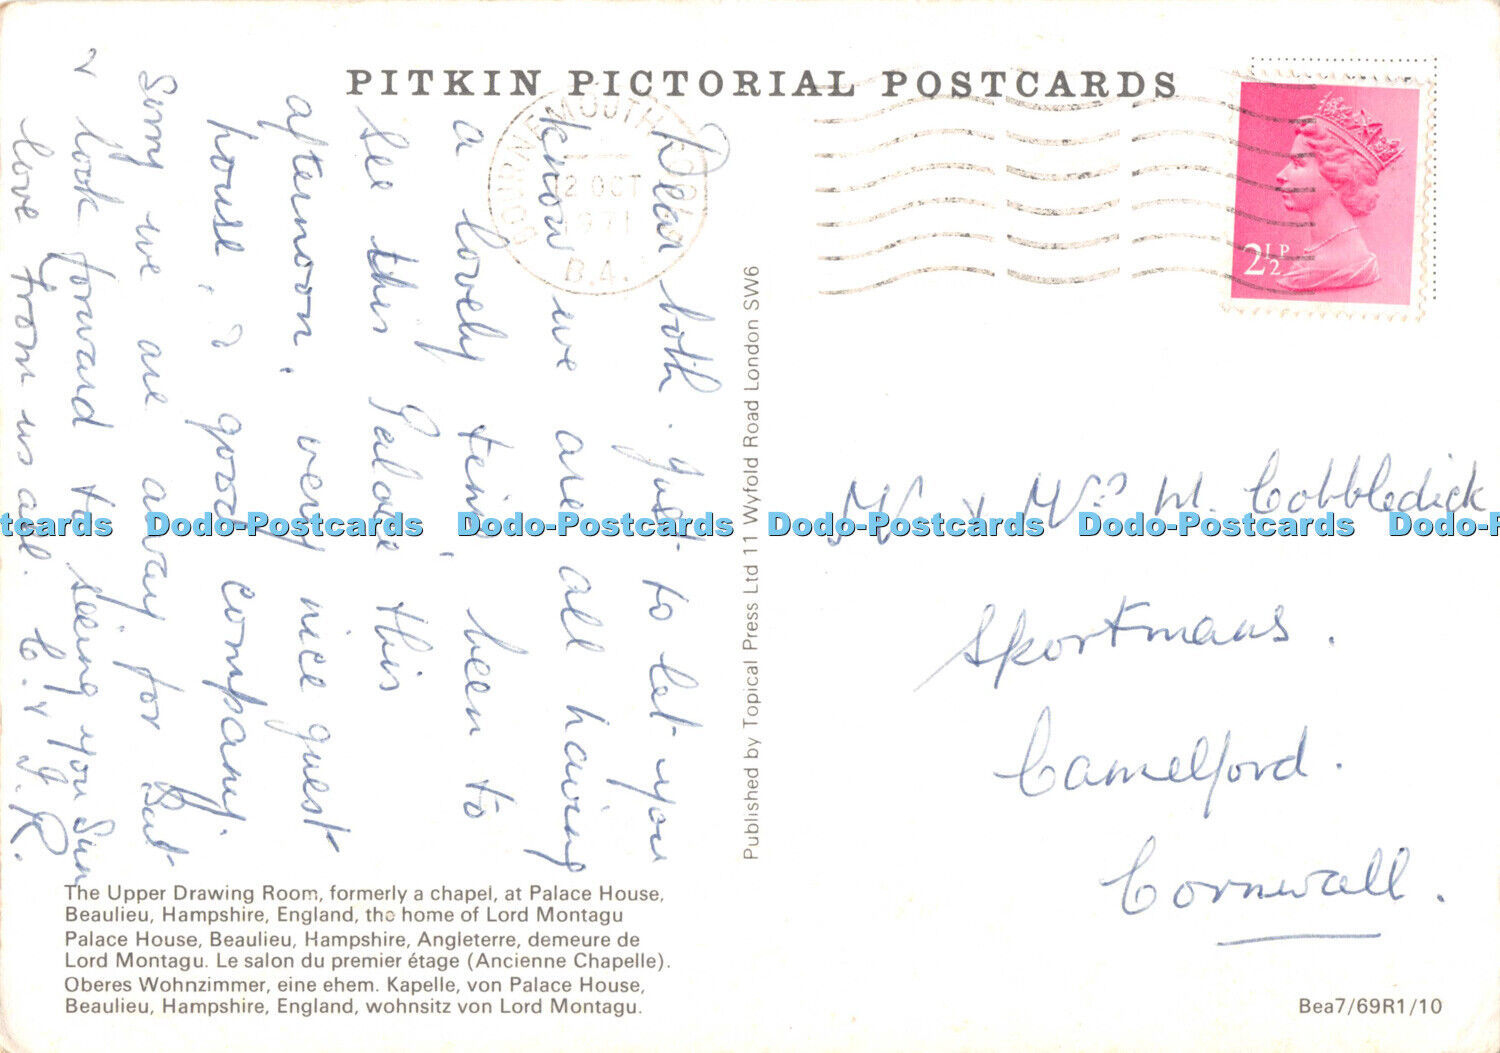 PITKIN PICTORIAL POSTCARDS
BOURNEMOUTH POOLE
12 OCT
1971
B.A.
2½P
Dear both. Just to let you
know we are all having
a lovely time, been to
see this Palace this
afternoon, very nice guest
house, & good company.
Sorry we are away for but
& look forward to seeing you Sun
love from us all. C. & J. R.
Published by Topical Press Ltd 11 Wyfold Road London SW6
Mr & Mrs W. Cobbledick
Sportmans.
Camelford.
Cornwall.
Dodo-Postcards Dodo-Postcards Dodo-Postcards Dodo-Postcards Dodo-Postcards Dodo-P
The Upper Drawing Room, formerly a chapel, at Palace House,
Beaulieu, Hampshire, England, the home of Lord Montagu
Palace House, Beaulieu, Hampshire, Angleterre, demeure de
Lord Montagu. Le salon du premier étage (Ancienne Chapelle).
Oberes Wohnzimmer, eine ehem. Kapelle, von Palace House,
Beaulieu, Hampshire, England, wohnsitz von Lord Montagu.
Bea7/69R1/10